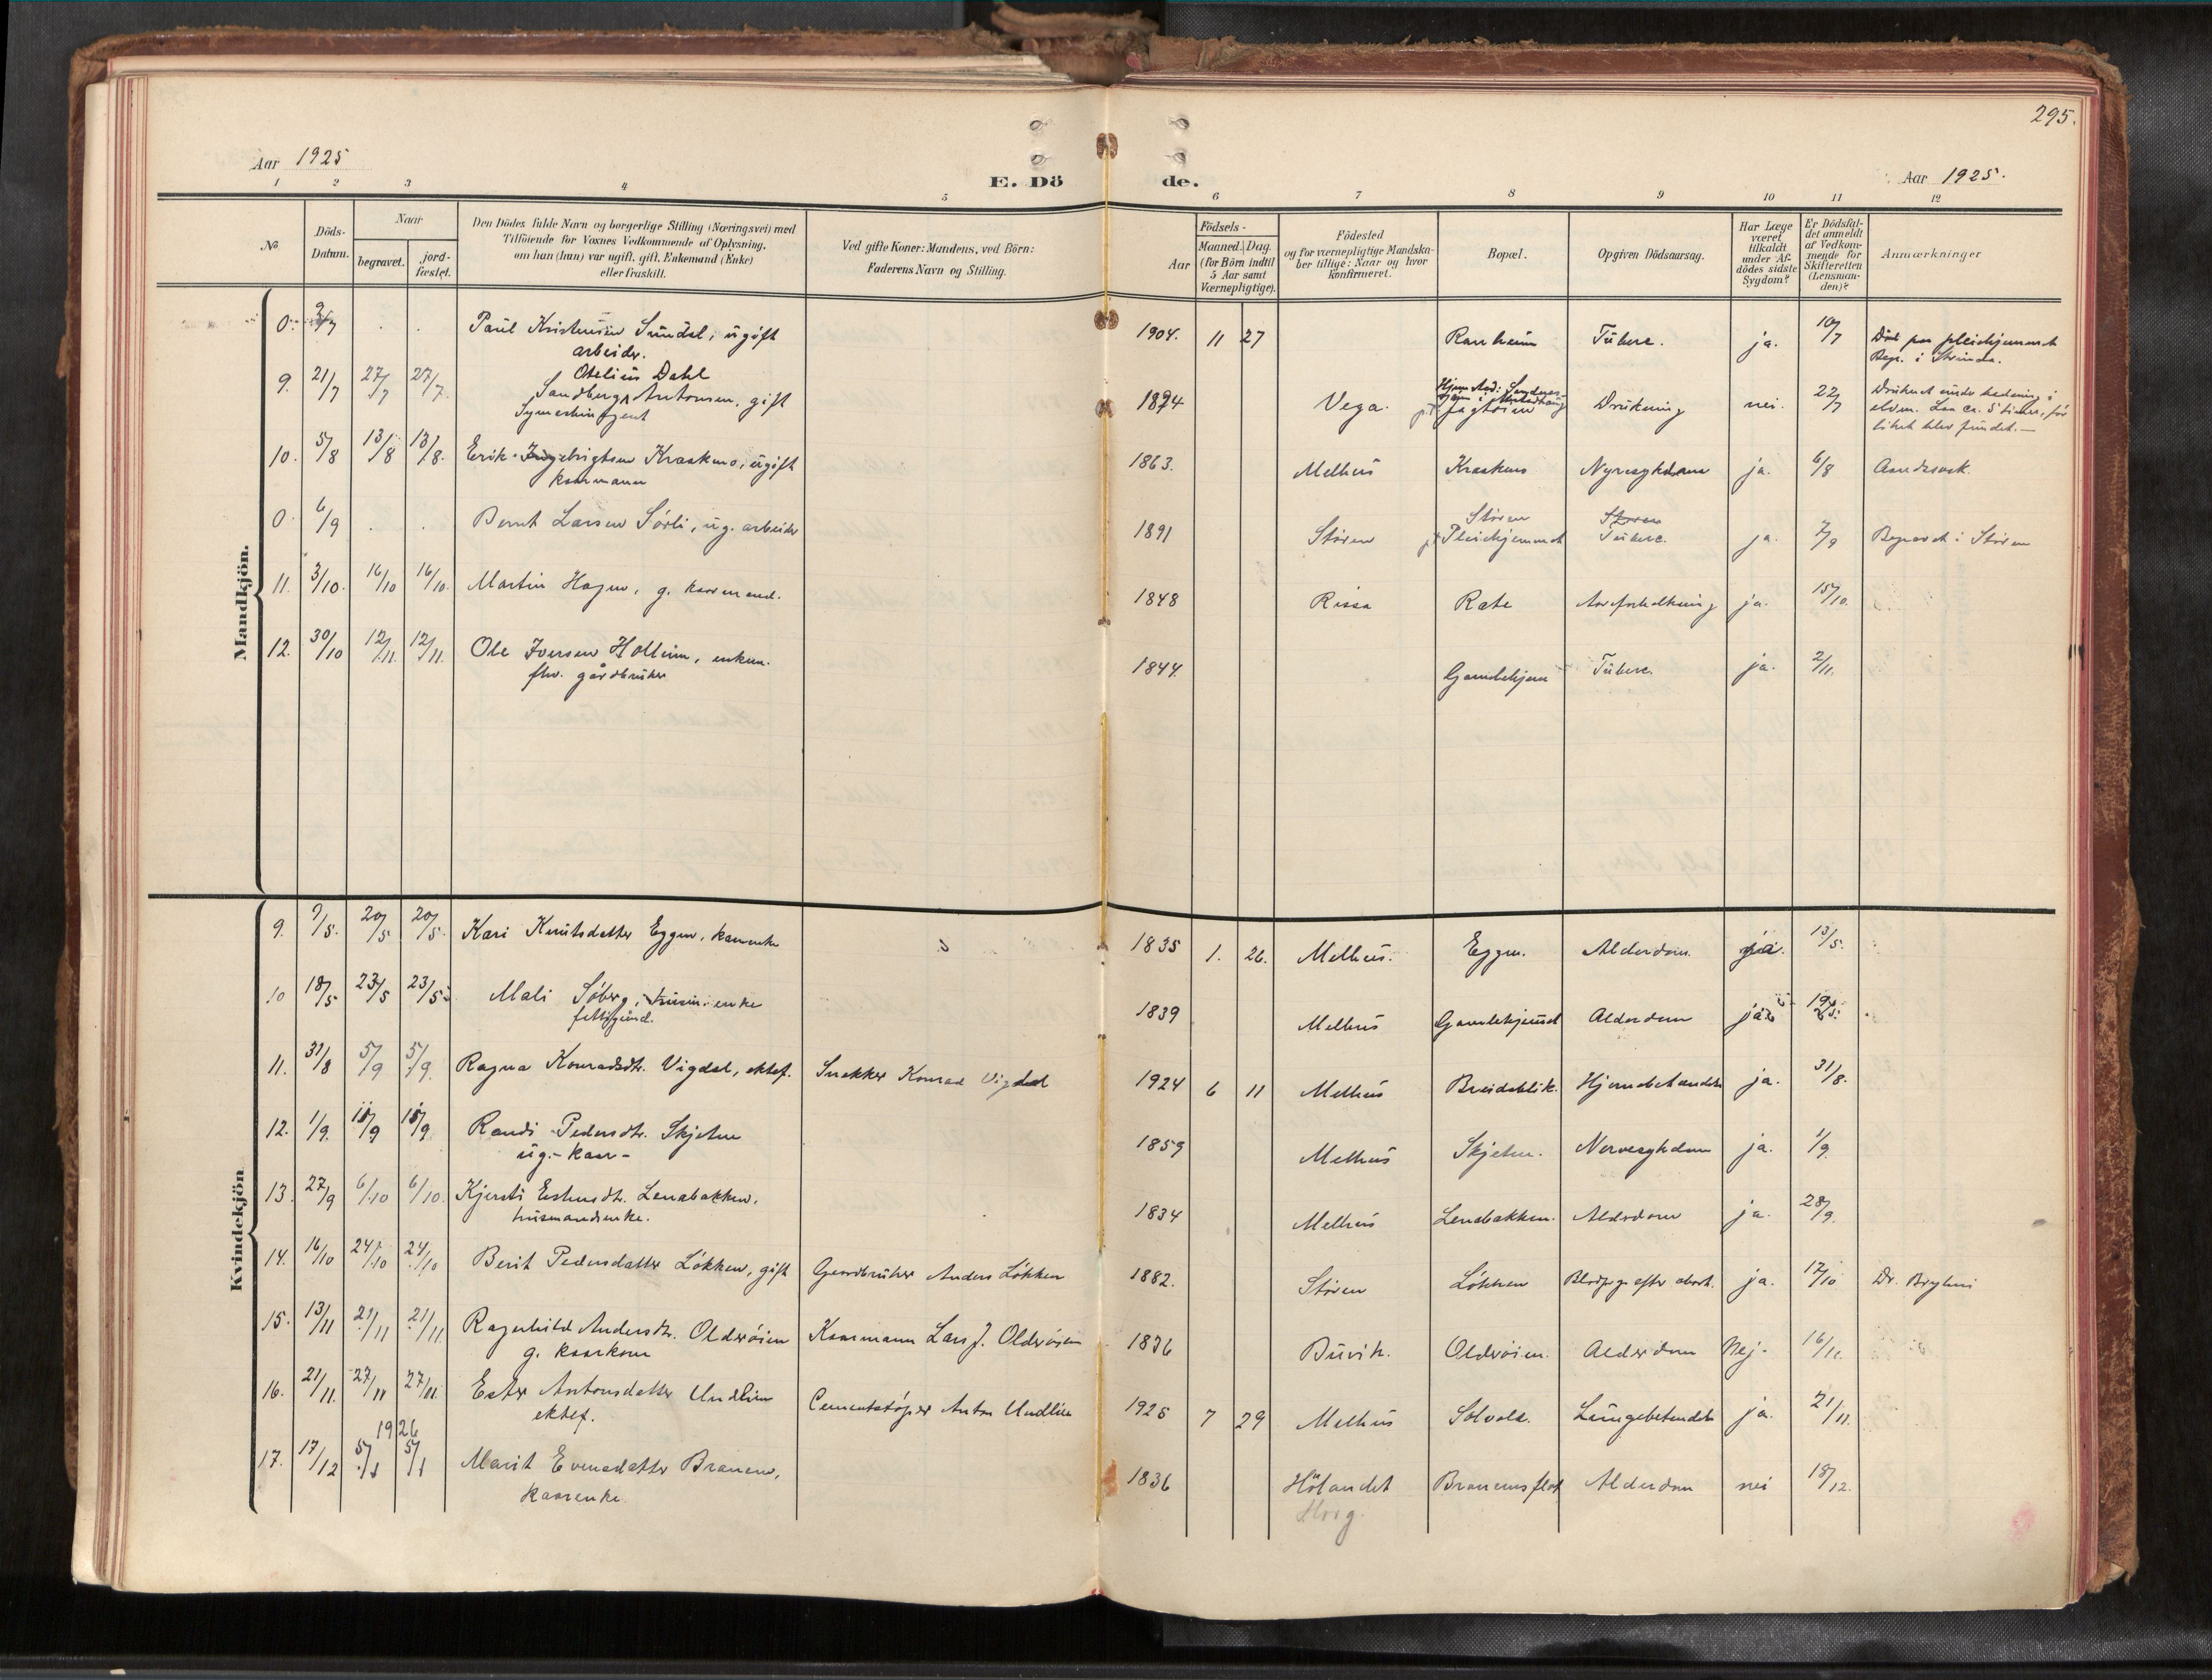 295.
Aar 1925
E. Dö de.
Aar 1925.
1 2 3 4 5 6 7 8 9 10 11 12
No
Döds-
Datum.
Naar
begravet.
jord-
fæstet.
Den Dödes fulde Navn og borgerlige Stilling (Næringsvei) med
Tilföiende for Voxnes Vedkommende af Oplysning,
om han (hun) var ugift, gift, Enkemand (Enke)
eller fraskilt.
Ved gifte Koner: Mandens, ved Börn:
Faderens Navn og Stilling.
Födsels-
Aar
Maaned. Dag.
(for Börn indtil
5 Aar samt
Værnepligtige).
Födested
og for værnepligtige Mandska-
ber tillige: Naar og hvor
konfirmeret.
Bopæl.
Opgiven Dödsaarsag.
Har Læge
været
tilkaldt
under Af-
dödes sidste
Sygdom?
Er Dödsfal-
det anmeldt
af Vedkom-
mende for
Skifteretten
(Lensman-
den)?
Anmærkninger
Mandkjön.
0. 9/7 Paul Kristensen Sundal, ugift 1904. 11 27 Ranheim Tuberc. ja. 10/7 Död paa pleiehjemmet
arbeider. Begr. i Strinda.
Otelius Dahl
9. 21/7 27/7 27/7 Sandberg Antonsen, gift 1894 Vega. Jagtöien Drukning nei. 22/7 Druknet under badning i
Symaskinagent elven. Laa ca. 5 timer, før
liket blev fundet.—
10. 5/8 13/8 13/8. Erik Ingebrigtsen Kraakmo, ugift 1863. Melhus Kraakmo Nyresykdom ja. 6/8 Aandssvak.
kaarmann
0. 6/9 Bernt Larsen Sörli, ug. arbeider 1891 Stören Stören
Pleiehjemmet Tuberc. ja. 7/9 Begravet i Stören
11. 3/10. 16/10 16/10. Martin Hagen, g. kaarmand. 1848 Rissa Rate Aareforkalkning ja. 15/10.
12. 30/10 12/11. 12/11. Ole Iversen Hollum, enkem. 1844. Gamlehjem Tuberc. ja. 2/11.
fhv. gårdbruker
Kvindekjön
9. 9/5. 20/5 20/5. Kari Knutsdatter Eggen, kaarenke 1835 1. 26. Melhus. Eggen. Alderdom. ja. 13/5.
10 18/5 23/5 23/5 Mali Söberg, husm. enke 1839 Melhus Gamlehjemmet Alderdom ja 19/5.
fattigund.
11. 31/8 5/9 5/9. Ragna Konradsdtr. Vigdal, ektef. Snekker Konrad Vigdal 1924 6 11 Melhus Breidablik. Hjernebetændelse ja. 31/8.
12. 1/9. 18/9 18/9 Randi Pedersdtr. Skjetne 1859 Melhus Skjetne. Nervesykdom ja. 1/9.
ug.- kaar-
13. 27/9 6/10 6/10. Kjersti Estensdtr. Lenabakken. 1834 Melhus Lenabakken. Alderdom ja. 28/9.
husmandsenke.
14. 16/10 24/10 24/10 Berit Pedersdatter Løkken, gift Gaardbruker Anders Løkken 1882. Stören Løkken Blodpr. efter abort. ja. 17/10 Dr. Bryhni
15. 13/11 21/11 21/11 Ragnhild Andersdtr. Oldervöien Kaarmann Lars J. Oldervöien 1836 Buvik. Oldervöien. Alderdom Nej. 16/11.
g. kaarkone
16. 21/11. 27/11 27/11. Ester Antonsdatter Undlien Cementstøper Anton Undlien 1925 7 29 Melhus Solvold. Lungebetændelse ja. 21/11.
ektef.
1926
17. 17/12 5/1 5/1 Marit Evensdatter Branem, 1836 Hölandet Branemsflot Alderdom nei 18/12.
kaarenke. Horg.